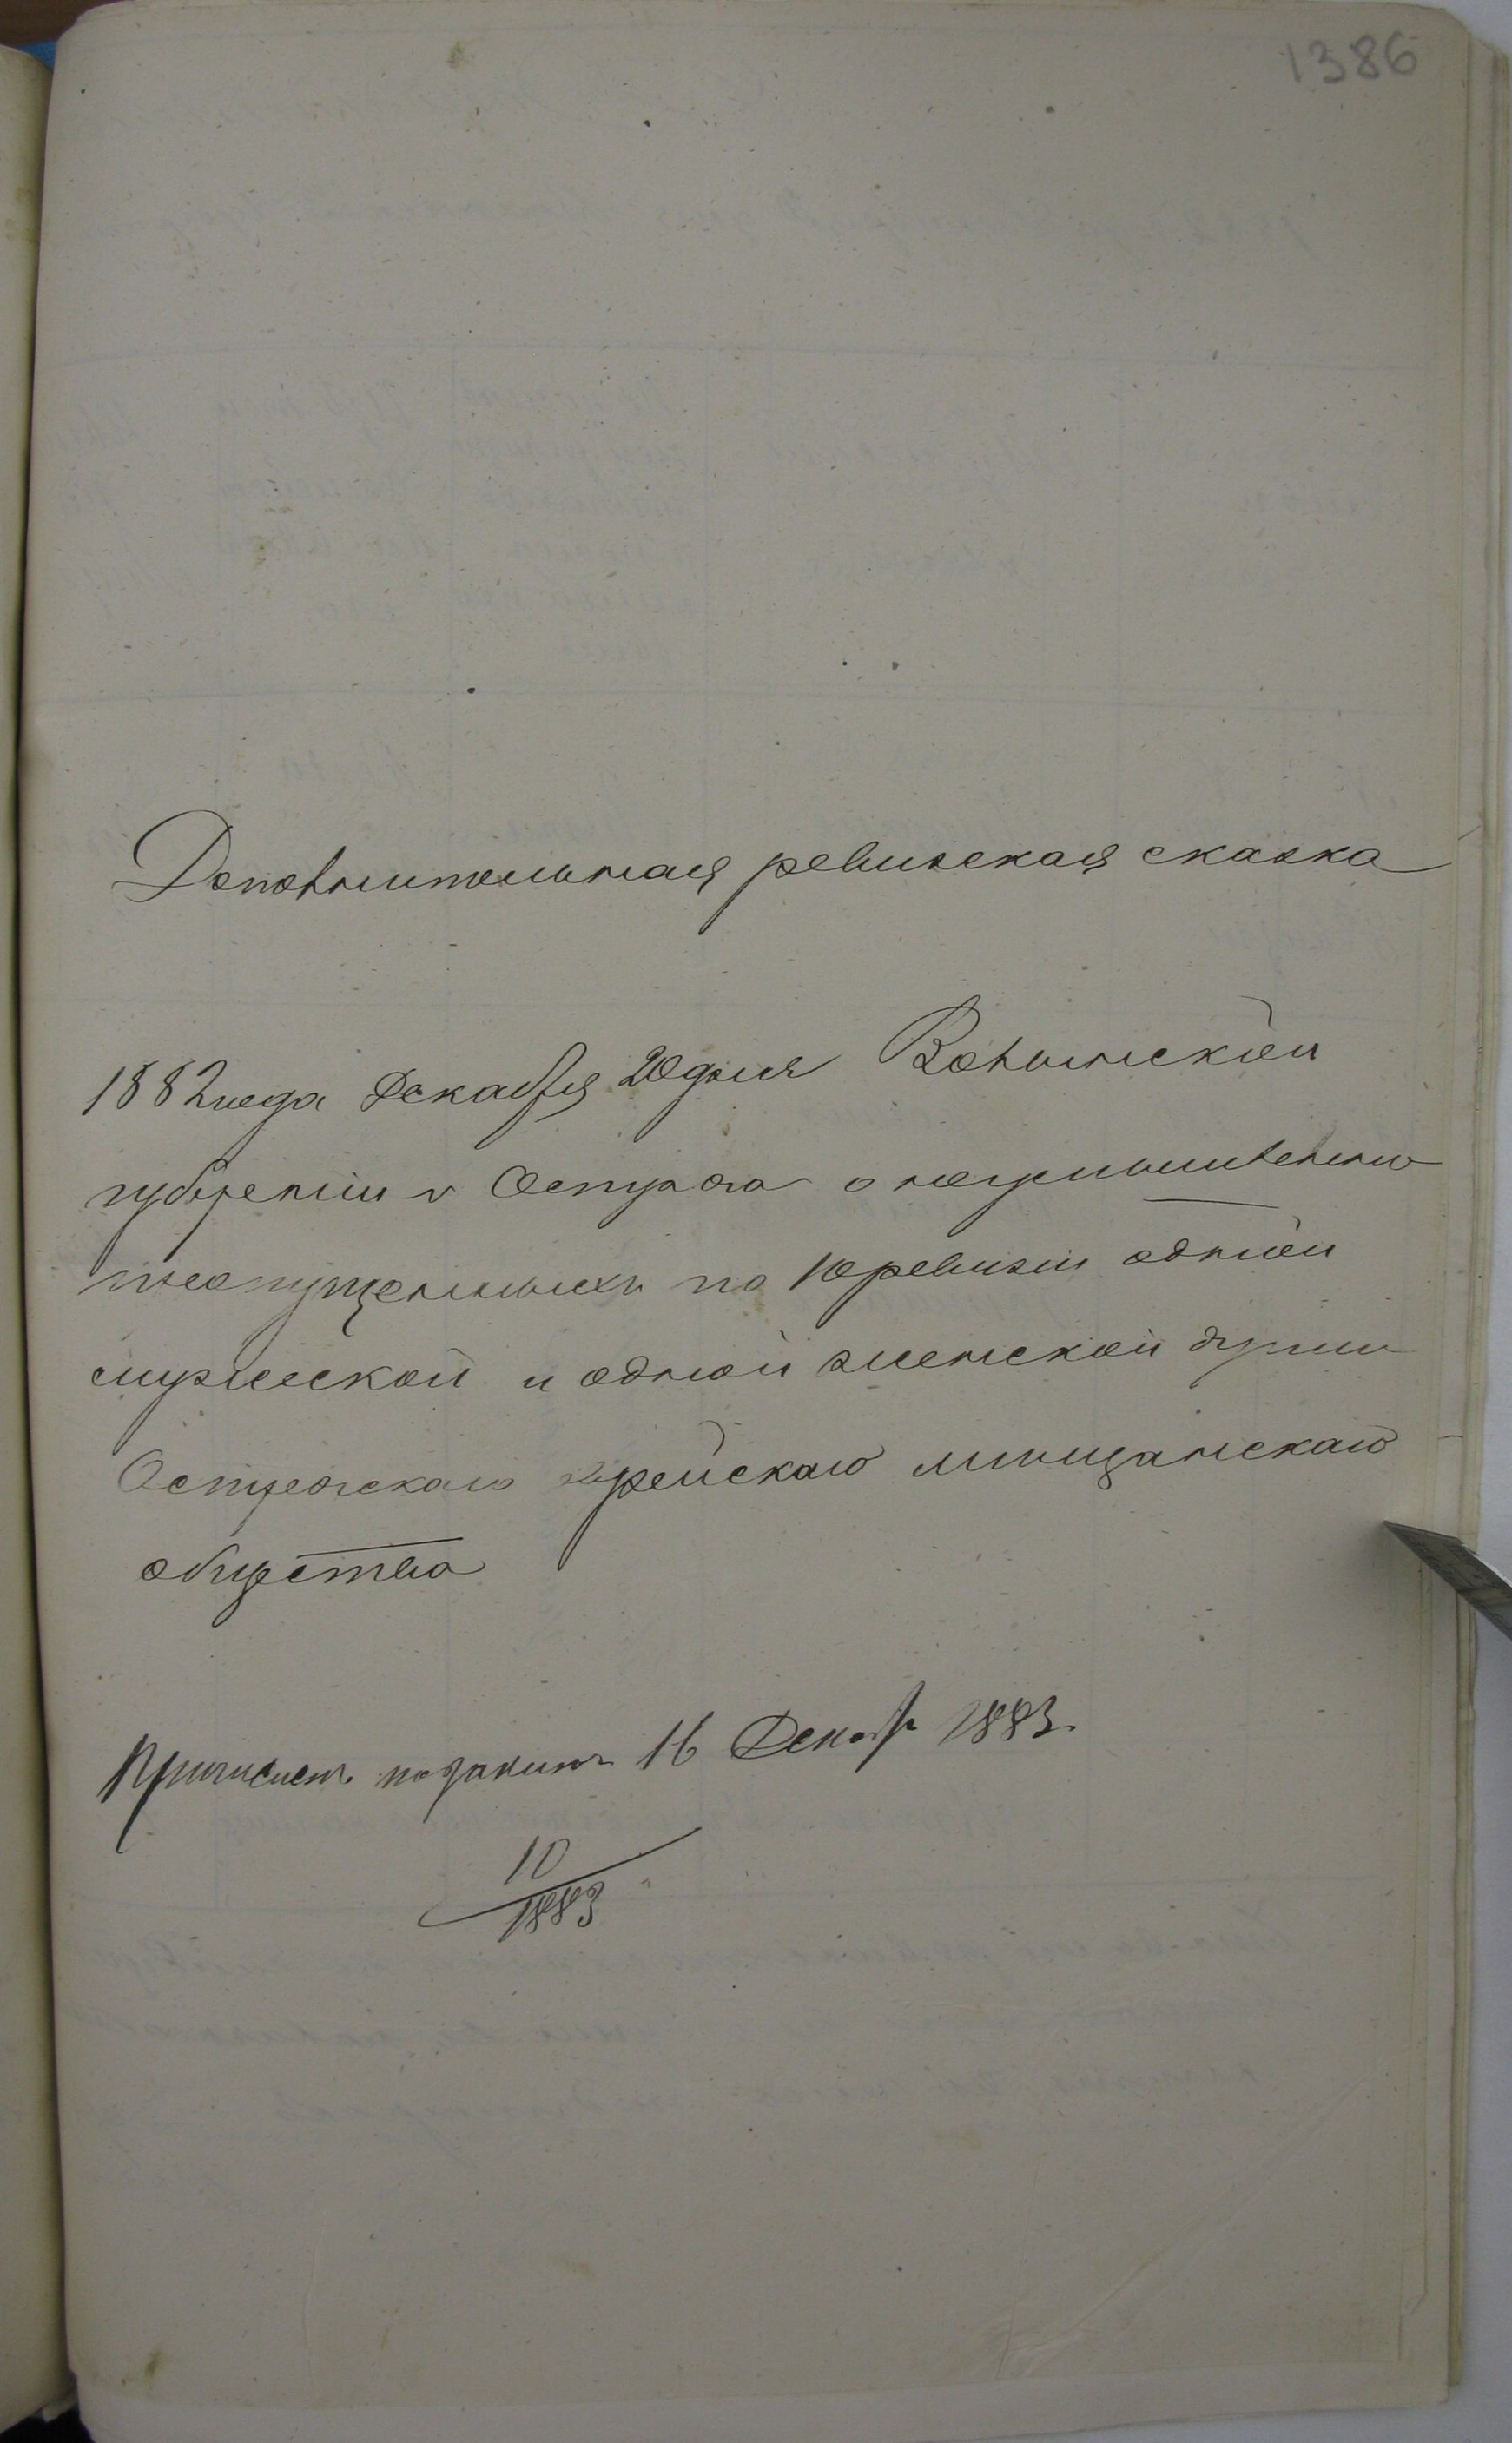 1386
Дополнительная ревизская сказка
1882 года Декабря 20 дня Волынской
губерніи г Острога о неумышленно
пропущенныхъ по 10 ревизіи одной
мужеской и одной женской души
Острожскаго еврейскаго мѣщанскаго
общества
16 Декабр 1883.
10
1883